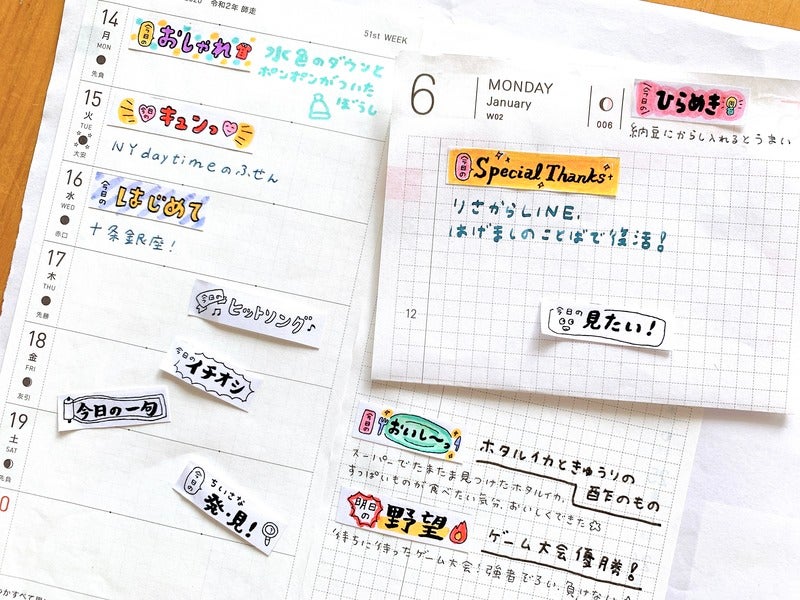 令和2年 師走
51st WEEK
14
月
MON
先負
今日の
おしゃれ
水色のダウンと
ポンポンがついた
ぼうし
15
火
TUE
大安
今日の
キュンっ
NY daytimeのふせん
16
水
WED
赤口
今日の
はじめて
十条銀座!
17
木
THU
先勝
今日の
ヒットソング♪
18
金
FRI
友引
今日の
イチオシ
今日の一句
19
土
SAT
先負
今日の
ちいさな
発見!
6
MONDAY
January
W02
006
今日の
ひらめき
納豆にからし入れるとうまい
今日の
Special Thanks
りさからLINE.
はげましのことばで復活!
12
今日の
見たい!
今日の
おいし〜っ
ホタルイカときゅうりの
酢のもの
スーパーでたまたま見つけたホタルイカ.
すっぱいものが食べたい気分. おいしくできた☆
明日の
野望
ゲーム大会優勝!
待ちに待ったゲーム大会!強者ぞろい.負けない